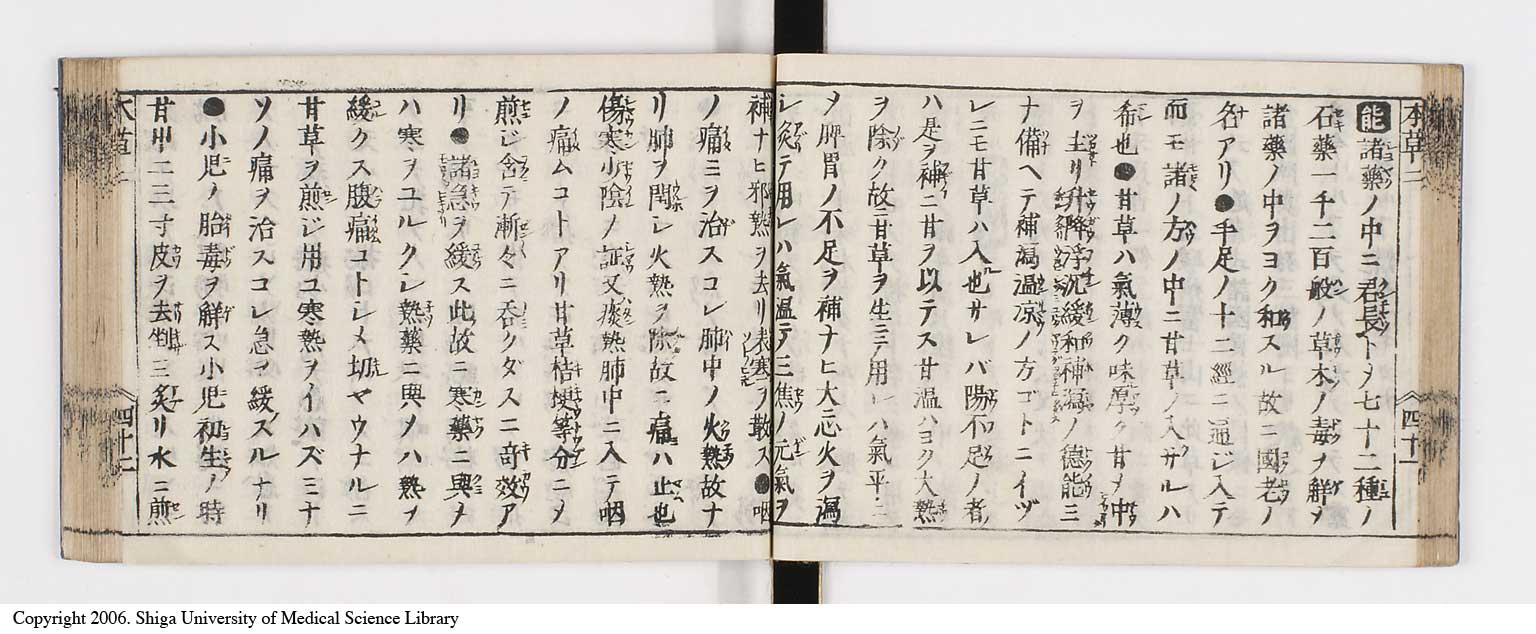 本草二
四十一
能諸藥ノ中ニ君長トメ七十二種ノ
石藥一千二百般ノ草木ノ毒ヲ鮮メ
諸藥ノ中ヲヨク和スル故ニ國老ノ
名アリ●手足ノ十二經ニ通シ入テ
而モ諸ノ方ノ中ニ甘草ノ入サルハ
希也●甘草ハ氣薄ク味厚ク甘メ中
ヲ土リ升降浮沉緩和補瀉ノ德能三
ナ備ヘテ補瀉温凉ノ方コトニイヅ
レニモ甘草ハ入也サレバ陽不足ノ者
ハ是ヲ補ニ甘ヲ以テス甘温ハヨク大熱
ヲ除ク故ニ甘草ヲ生ニテ用レハ氣平ニ
メ脾胃ノ不足ヲ補ナヒ大心火ヲ瀉
レ炙テ用レハ氣温ニテ三焦ノ元氣ヲ
補ナヒ邪熱ヲ去リ表寒ヲ散ス●咽
ノ痛ミヲ治スコレ肺中ノ火熱故ナ
リ肺ヲ閏シ火熱ヲ除故ニ痛ハ止也
傷寒小陰ノ証又痰熱肺中ニ入テ咽
ノ痛ムコトアリ甘草桔梗等分ニメ
煎シ含テ漸々ニ呑クダスニ奇效ア
リ●諸急ヲ緩ス此故ニ寒藥ニ與メ
ハ寒ヲユルクシ熱藥ニ與メハ熱ヲ
緩クス腹痛コトシメ切ヤウナルニ
甘草ヲ煎ジ用ユ寒熱ヲイハズミナ
ソノ痛ヲ治スコレ急ヲ緩スルナリ
●小児ノ胎毒ヲ鮮ス小児初生ノ時
甘艸二三寸皮ヲ去炙リ水ニ煎
本草二
四十二
Copyright 2006. Shiga University of Medical Science Library